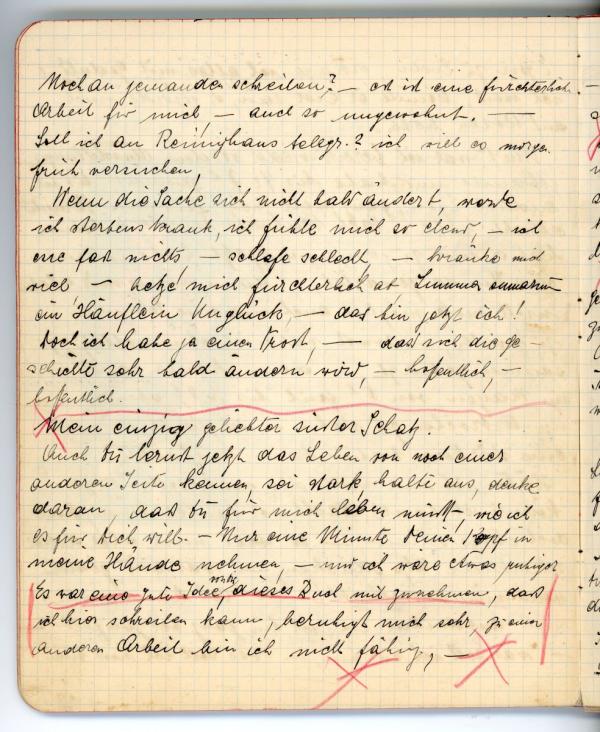 Noch an jemanden schreiben? – es ist eine fürchterlich
Arbeit für mich – auch so ungewohnt. —
Soll ich an Reinighaus telegr.? ich will es morgen
früh versuchen,
Wenn die Sache sich nicht bald ändert, werde
ich sterbenskrank, ich fühle mich so elend, – ich
esse fast nichts, – schlafe schlecht, – kränke mich
viel – hetze mich fürchterlich ab Summa summarum
ein Häuflein Unglück, – das bin jetzt ich!
Doch ich habe ja einen Trost, – dass sich die Ge-
schichte sehr bald ändern wird, – hoffentlich, –
hoffentlich.
Mein einzig geliebter süsser Schatz.
Auch Du lernst jetzt das Leben von noch einer
anderen Seite kennen, sei stark, halte aus, denke
daran, dass Du für mich leben musst, wie ich
es für Dich will. – Nur eine Minute Deinen Kopf in
meine Hände nehmen, – und ich wäre etwas ruhiger
Es war eine gute Idee, dieses Buch mit zunehmen, dass
ich hier schreiben kann, beruhigt mich sehr, zu einer
anderen Arbeit bin ich nicht fähig, —